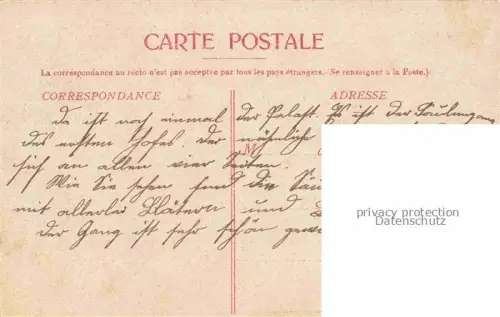 CARTE POSTALE
La correspondance au recto n'est pas acceptée par tous les pays étrangers. (Se renseigner à la Poste.)
CORRESPONDANCE
ADRESSE
Da ist noch einmal der Palast. Es ist der Säulengang
des ersten Hofes. Der nähmlich
M
sich an allen vier Seiten.
Wie Sie sehen sind die Säu
mit allerlei Blätern und
der Gang ist sehr schön
privacy protection
Datenschutz